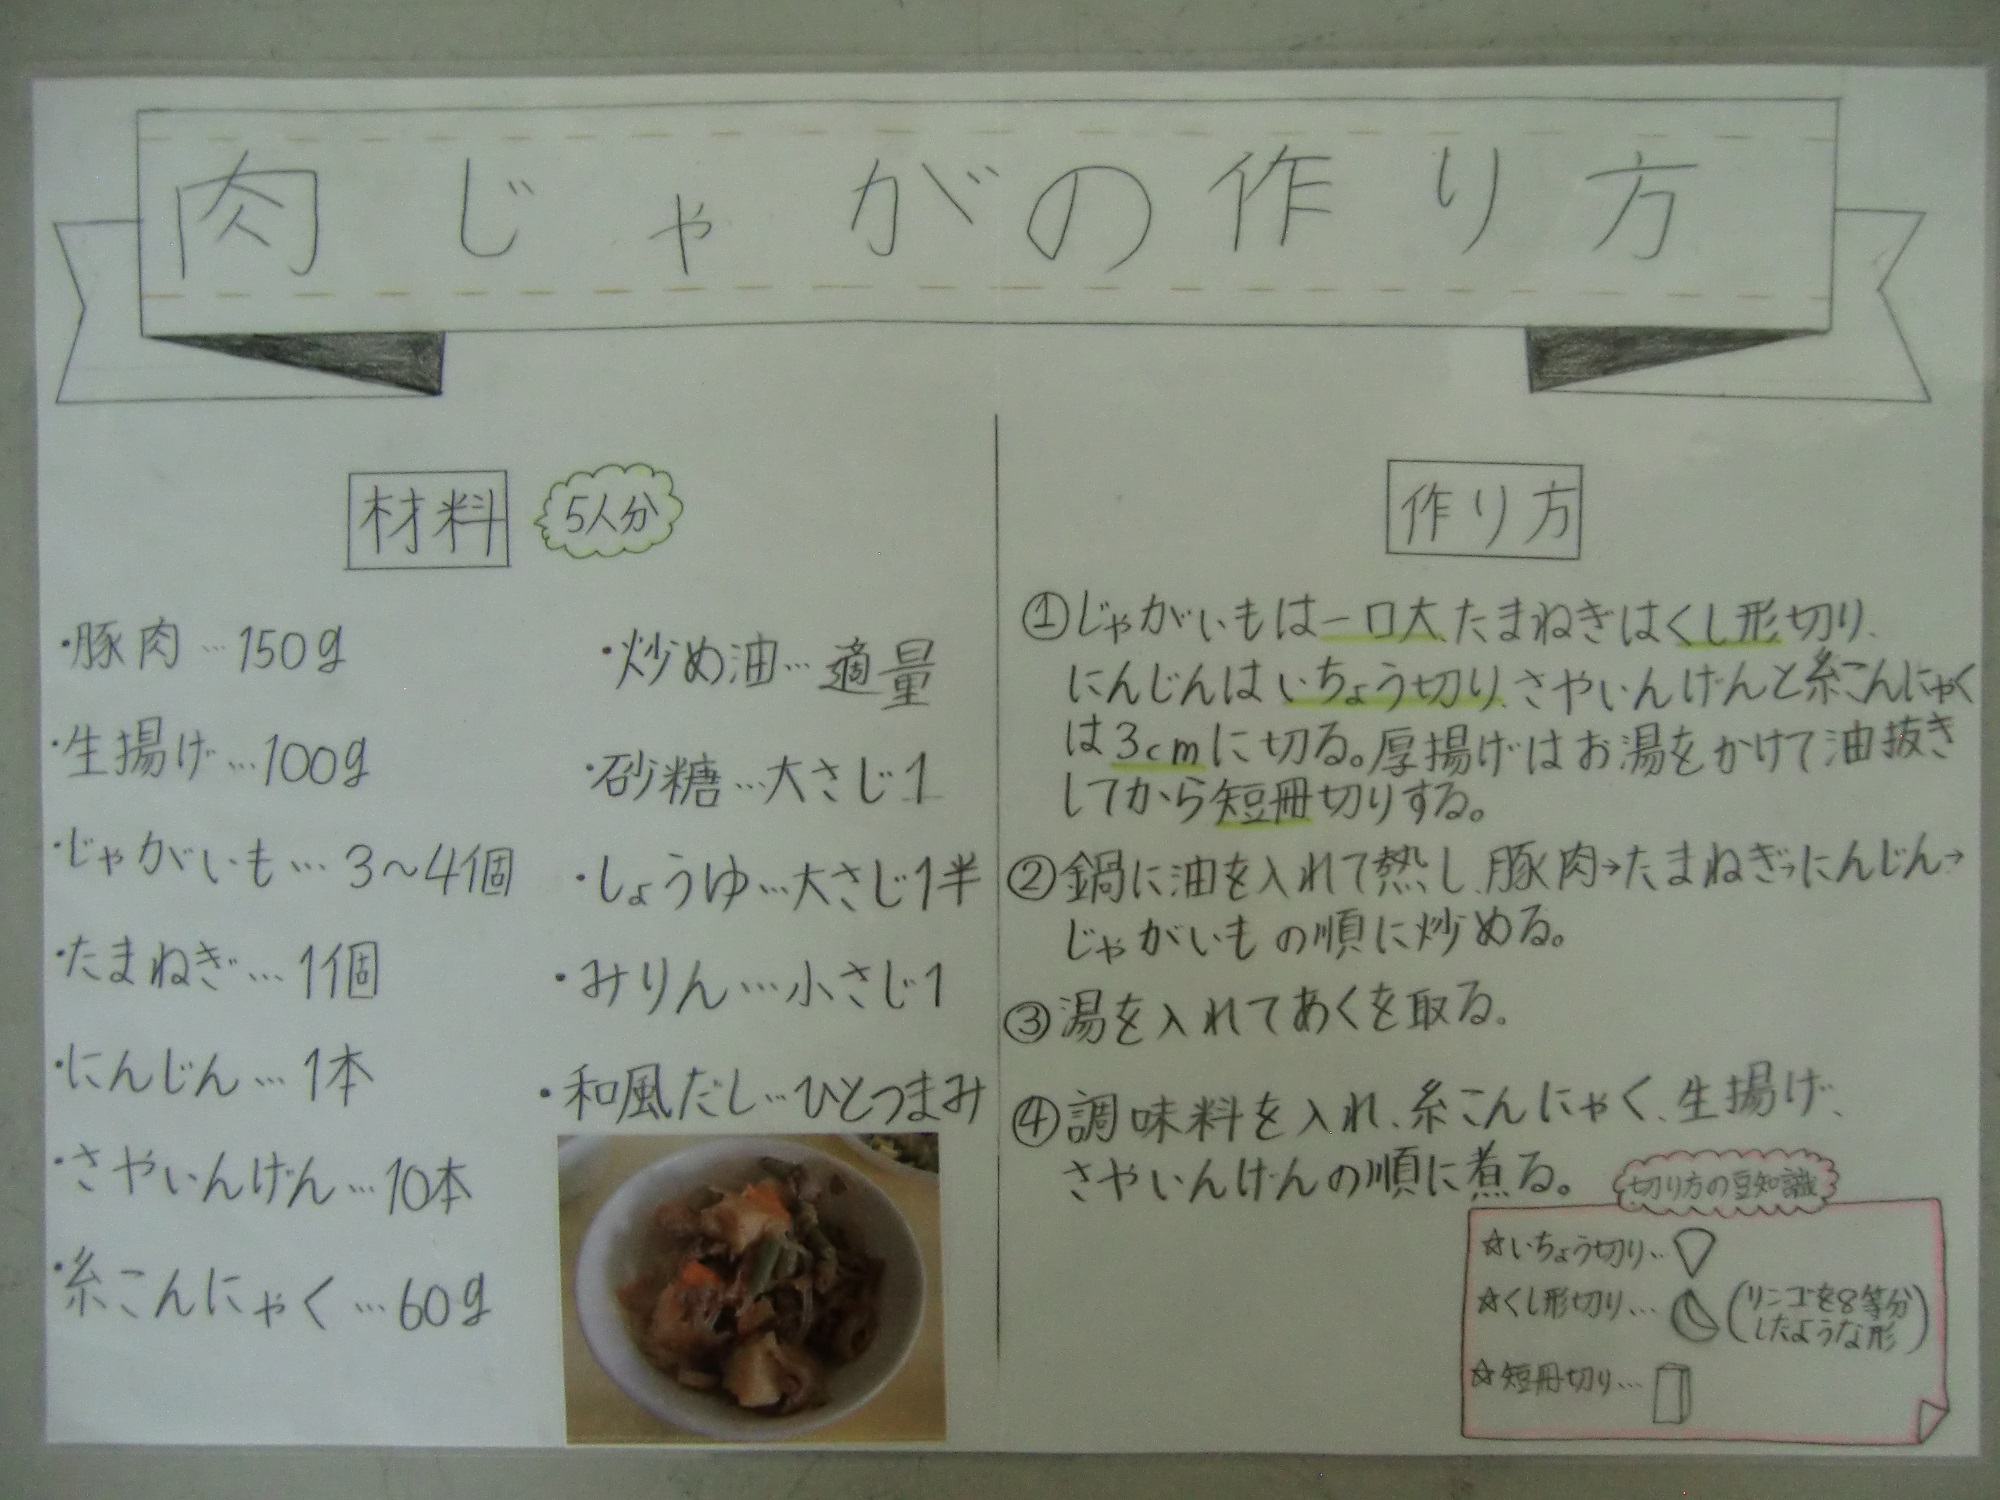 肉じゃがの作り方
材料
5人分
・豚肉…150g
・生揚げ…100g
・じゃがいも…3〜4個
・たまねぎ…1個
・にんじん…1本
・さやいんげん…10本
・糸こんにゃく…60g
・炒め油…適量
・砂糖…大さじ1
・しょうゆ…大さじ1半
・みりん…小さじ1
・和風だし…ひとつまみ
作り方
①じゃがいもは一口大、たまねぎはくし形切り、
にんじんはいちょう切り、さやいんげんと糸こんにゃく
は3cmに切る。厚揚げはお湯をかけて油抜き
してから短冊切りする。
②鍋に油を入れて熱し、豚肉→たまねぎ→にんじん→
じゃがいもの順に炒める。
③湯を入れてあくを取る。
④調味料を入れ、糸こんにゃく、生揚げ、
さやいんげんの順に煮る。
切り方の豆知識
☆いちょう切り…
☆くし形切り…(リンゴを8等分
したような形)
☆短冊切り…